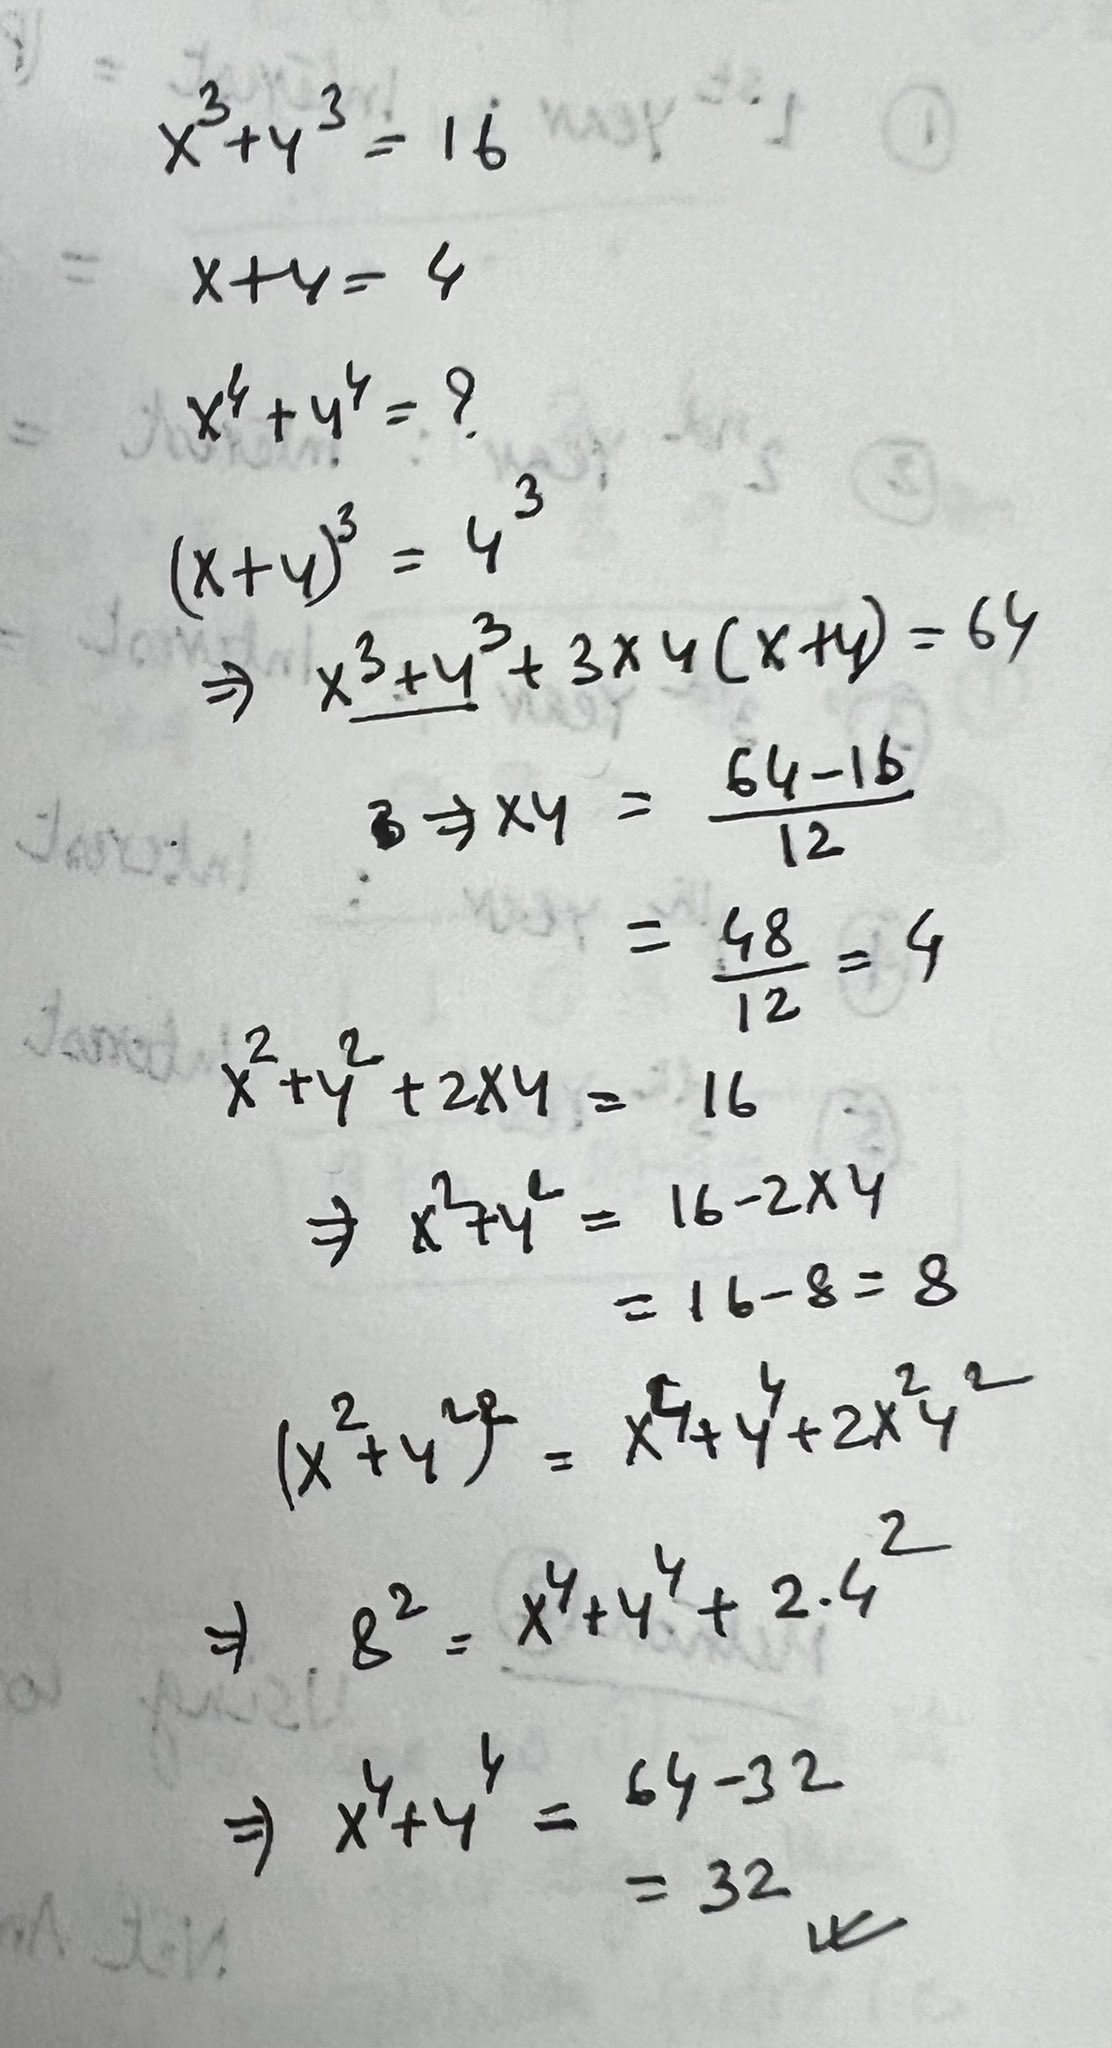 x³+y³ = 16
x+y = 4
x⁴+y⁴ = ?
(x+y)³ = 4³
⇒ x³+y³+3xy(x+y) = 64
⇒ xy = 64-16/12
= 48/12 = 4
x²+y²+2xy = 16
⇒ x²+y² = 16-2xy
= 16-8 = 8
(x²+y²)² = x⁴+y⁴+2x²y²
⇒ 8² = x⁴+y⁴+2.4²
⇒ x⁴+y⁴ = 64-32
= 32